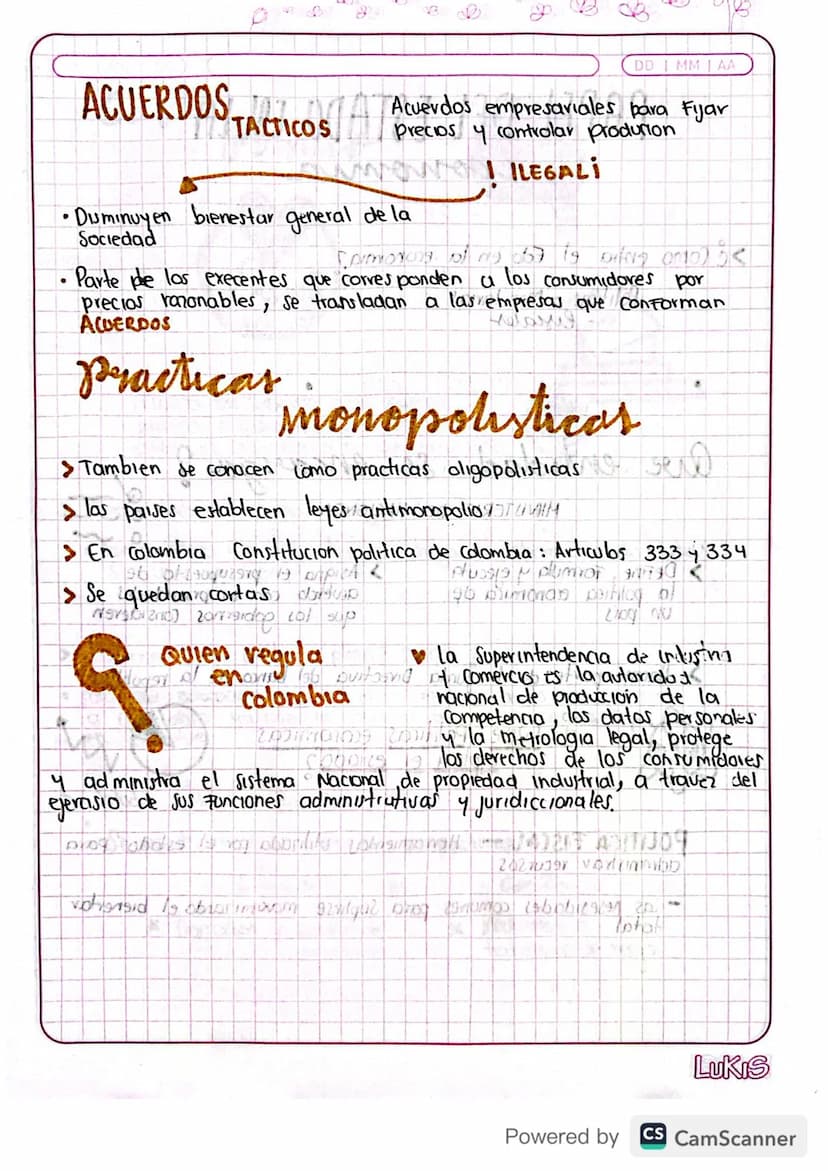 DD | MM | AA
ACUERDOS TACTICOS
Acuerdos empresariales para Fyar
precios y controlar producion
! ILEGAL¡
• Disminuyen bienestar general de la
Sociedad
• Parte de los execentes que corresponden a los consumidores por
precios razonables, se transladan a las empresas que conforman
ACUERDOS
practicas
monopolisticas
> Tambien se conocen como practicas oligopolisticas
> las paises establecen leyes antimonopolio
> En Colombia Constitucion politica de colombia: Articulos 333 y 334
> Se quedan cortas
Quien regula
en
colombia
♥ la Superintendencia de
y Comercio es la autoridad
nacional de produccion de la
competencia, los datos personales
y la metrologia legal, protege
los derechos de los consumidores
y administra el Sistema Nacional de propiedad industrial, a travez del
ejerasio de sus Funciones adminutrutivas y juridiccionales.
LUKIS
Powered by CS CamScanner